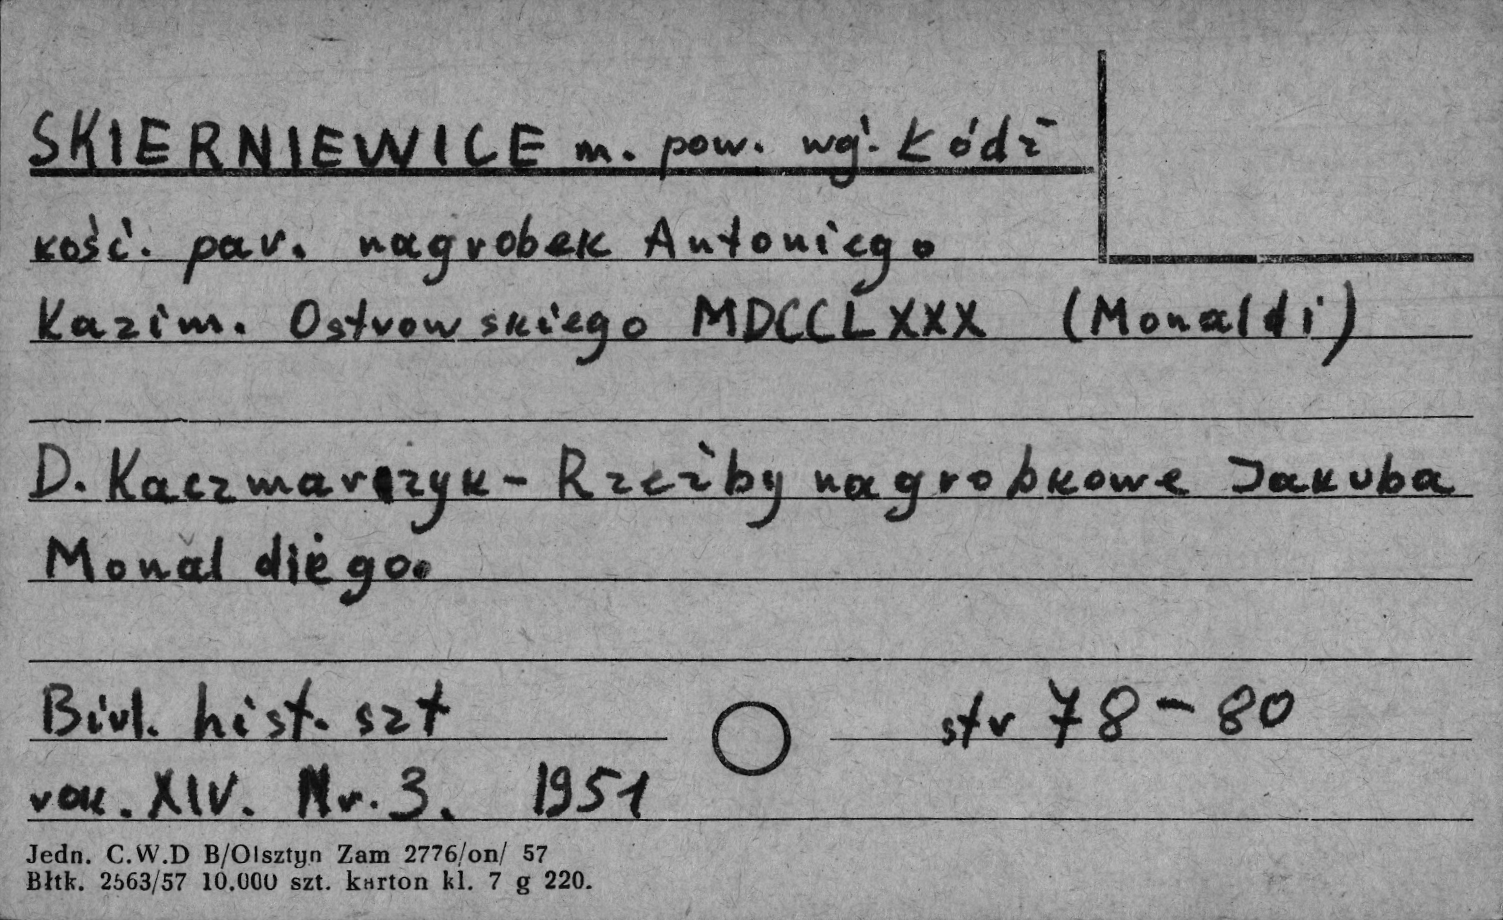 SKIERNIEWICE m. pow. wój. Łódź
kość. par. nagrobek Antoniego
Kazim. Ostrowskiego MDCCLXXX (Monaldi)
D. Kaczmarczyk - Rzeźby nagrobkowe Jakuba
Monaldiego.
Biul. hist. szt str 78-80
rok. XIV. Nr. 3. 1951
Jedn. C.W.D B/Olsztyn Zam 2776/on/ 57
Błtk. 2563/57 10.000 szt. karton kl. 7 g 220.